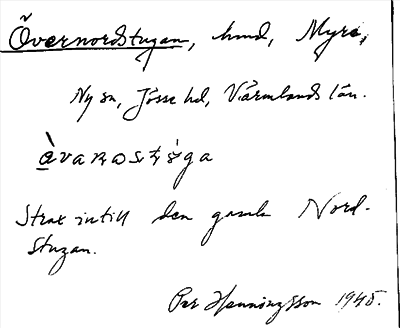 Övernordstugan, hmd, Myra,
Ny sn, Jösse hd, Värmlands län.
Strax intill den gamla Nord-
stugan.
Per Henningsson 1945.